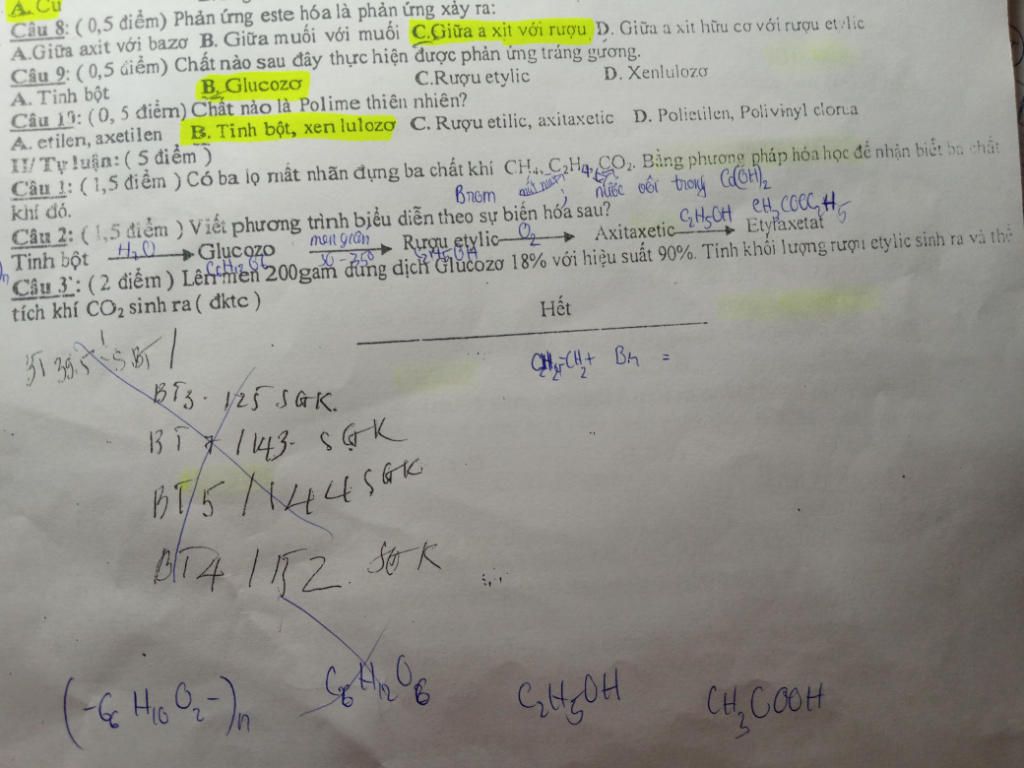 A. Cu
Câu 8: ( 0,5 điểm) Phản ứng este hóa là phản ứng xảy ra:
A.Giữa axit với bazơ B. Giữa muối với muối C.Giữa a xit với rượu D. Giữa a xit hữu cơ với rượu etylic
Câu 9: ( 0,5 điểm) Chất nào sau đây thực hiện được phản ứng tráng gương.
A. Tinh bột B. Glucozơ C.Rượu etylic D. Xenlulozơ
Câu 10: ( 0, 5 điểm) Chất nào là Polime thiên nhiên?
A. etilen, axetilen B. Tinh bột, xen lulozơ C. Rượu etilic, axitaxetic D. Polietilen, Polivinyl clorua
II/ Tự luận: ( 5 điểm )
Câu 1: ( 1,5 điểm ) Có ba lọ mất nhãn đựng ba chất khí CH4, C2H4, CO2. Bằng phương pháp hóa học để nhận biết ba chất
khí đó. Brom nước vôi trong Ca(OH)2
Câu 2: ( 1,5 điểm ) Viết phương trình biểu diễn theo sự biến hóa sau?
H2O men giấm O2 C2H5OH CH3COOC2H5
Tinh bột Glucozo Rượu etylic Axitaxetic Etylaxetat
C6H12O6 30-350 C2H5OH
Câu 3: ( 2 điểm ) Lên men 200gam dung dịch Glucozơ 18% với hiệu suất 90%. Tính khối lượng rượu etylic sinh ra và thể
tích khí CO2 sinh ra ( đktc )
Hết
BT 39.5 SBT
CH2=CH2+ Br =
BT3. 125 SGK.
BT 7 /143. SGK
BT 5 /144 SGK
BT4 /152 SGK
(-C6 H10 O2-)n C6H12O6 C2H5OH CH3COOH